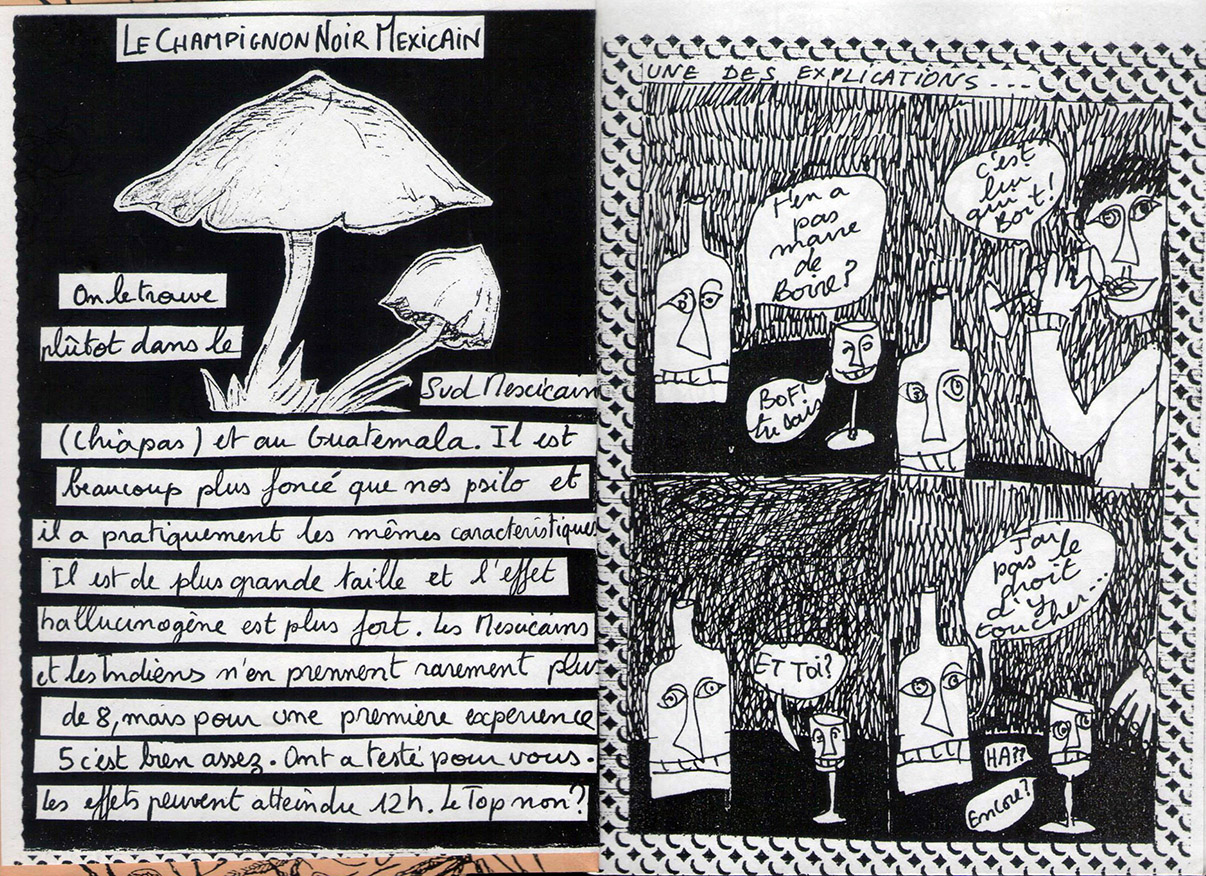 LE CHAMPIGNON NOIR MEXICAIN
On le trouve
plûtot dans le
Sud Mexicain
(Chiapas) et au Guatemala. Il est
beaucoup plus foncé que nos psilo et
il a pratiquement les mêmes caractéristiques
Il est de plus grande taille et l'effet
hallucinogène est plus fort. Les Mexicains
et les Indiens n'en prennent rarement plus
de 8, mais pour une première expérience
5 c'est bien assez. Ont a testé pour vous.
Les effets peuvent atteindre 12h. Le Top non?
UNE DES EXPLICATIONS....
T'en a
pas
marre
de
Boire?
BOF!
tu sais
c'est
lui
qui
Boit!
ET Toi?
J'ai
pas le
droit
d'y
toucher...
HA??
Encore?